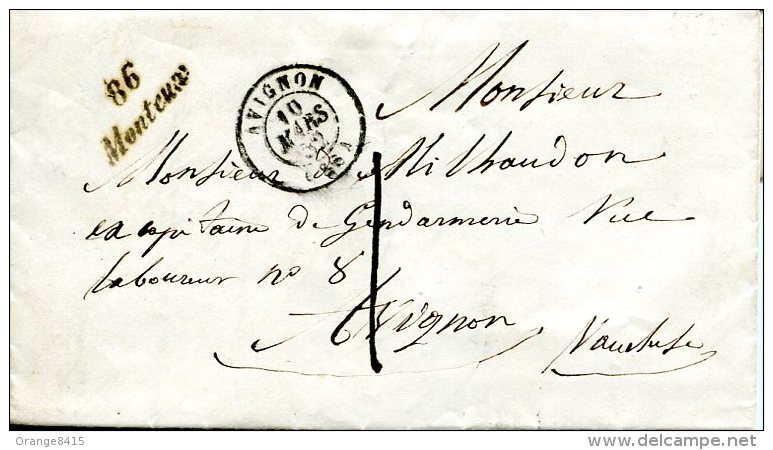 86
Monteux
AVIGNON
10
MARS
Monsieur
Monsieur de Milhaudon
ex capitaine de Gendarmerie Rue
laboureur no 8
1
Avignon
Vaucluse
Orange8415
www.delcampe.net